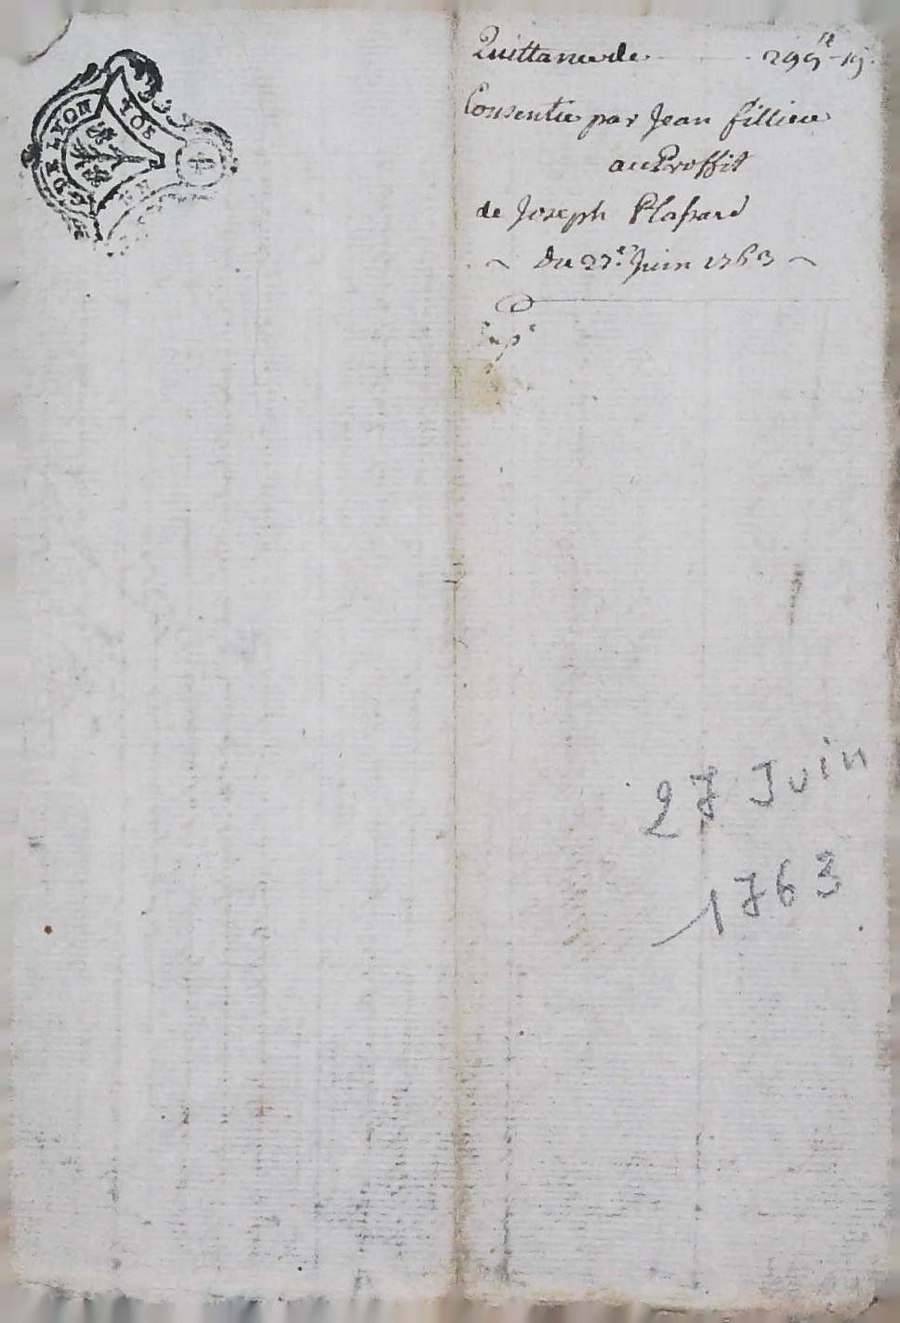 DE LYON
SOL
UN
Quittance de 299ᵗᵗ-19ˢ
Consentie par Jean fillieu
au Proffit
de Joseph Plassard
~ Du 27ᵉ Juin 1763 ~
Exp°
27 Juin
1763